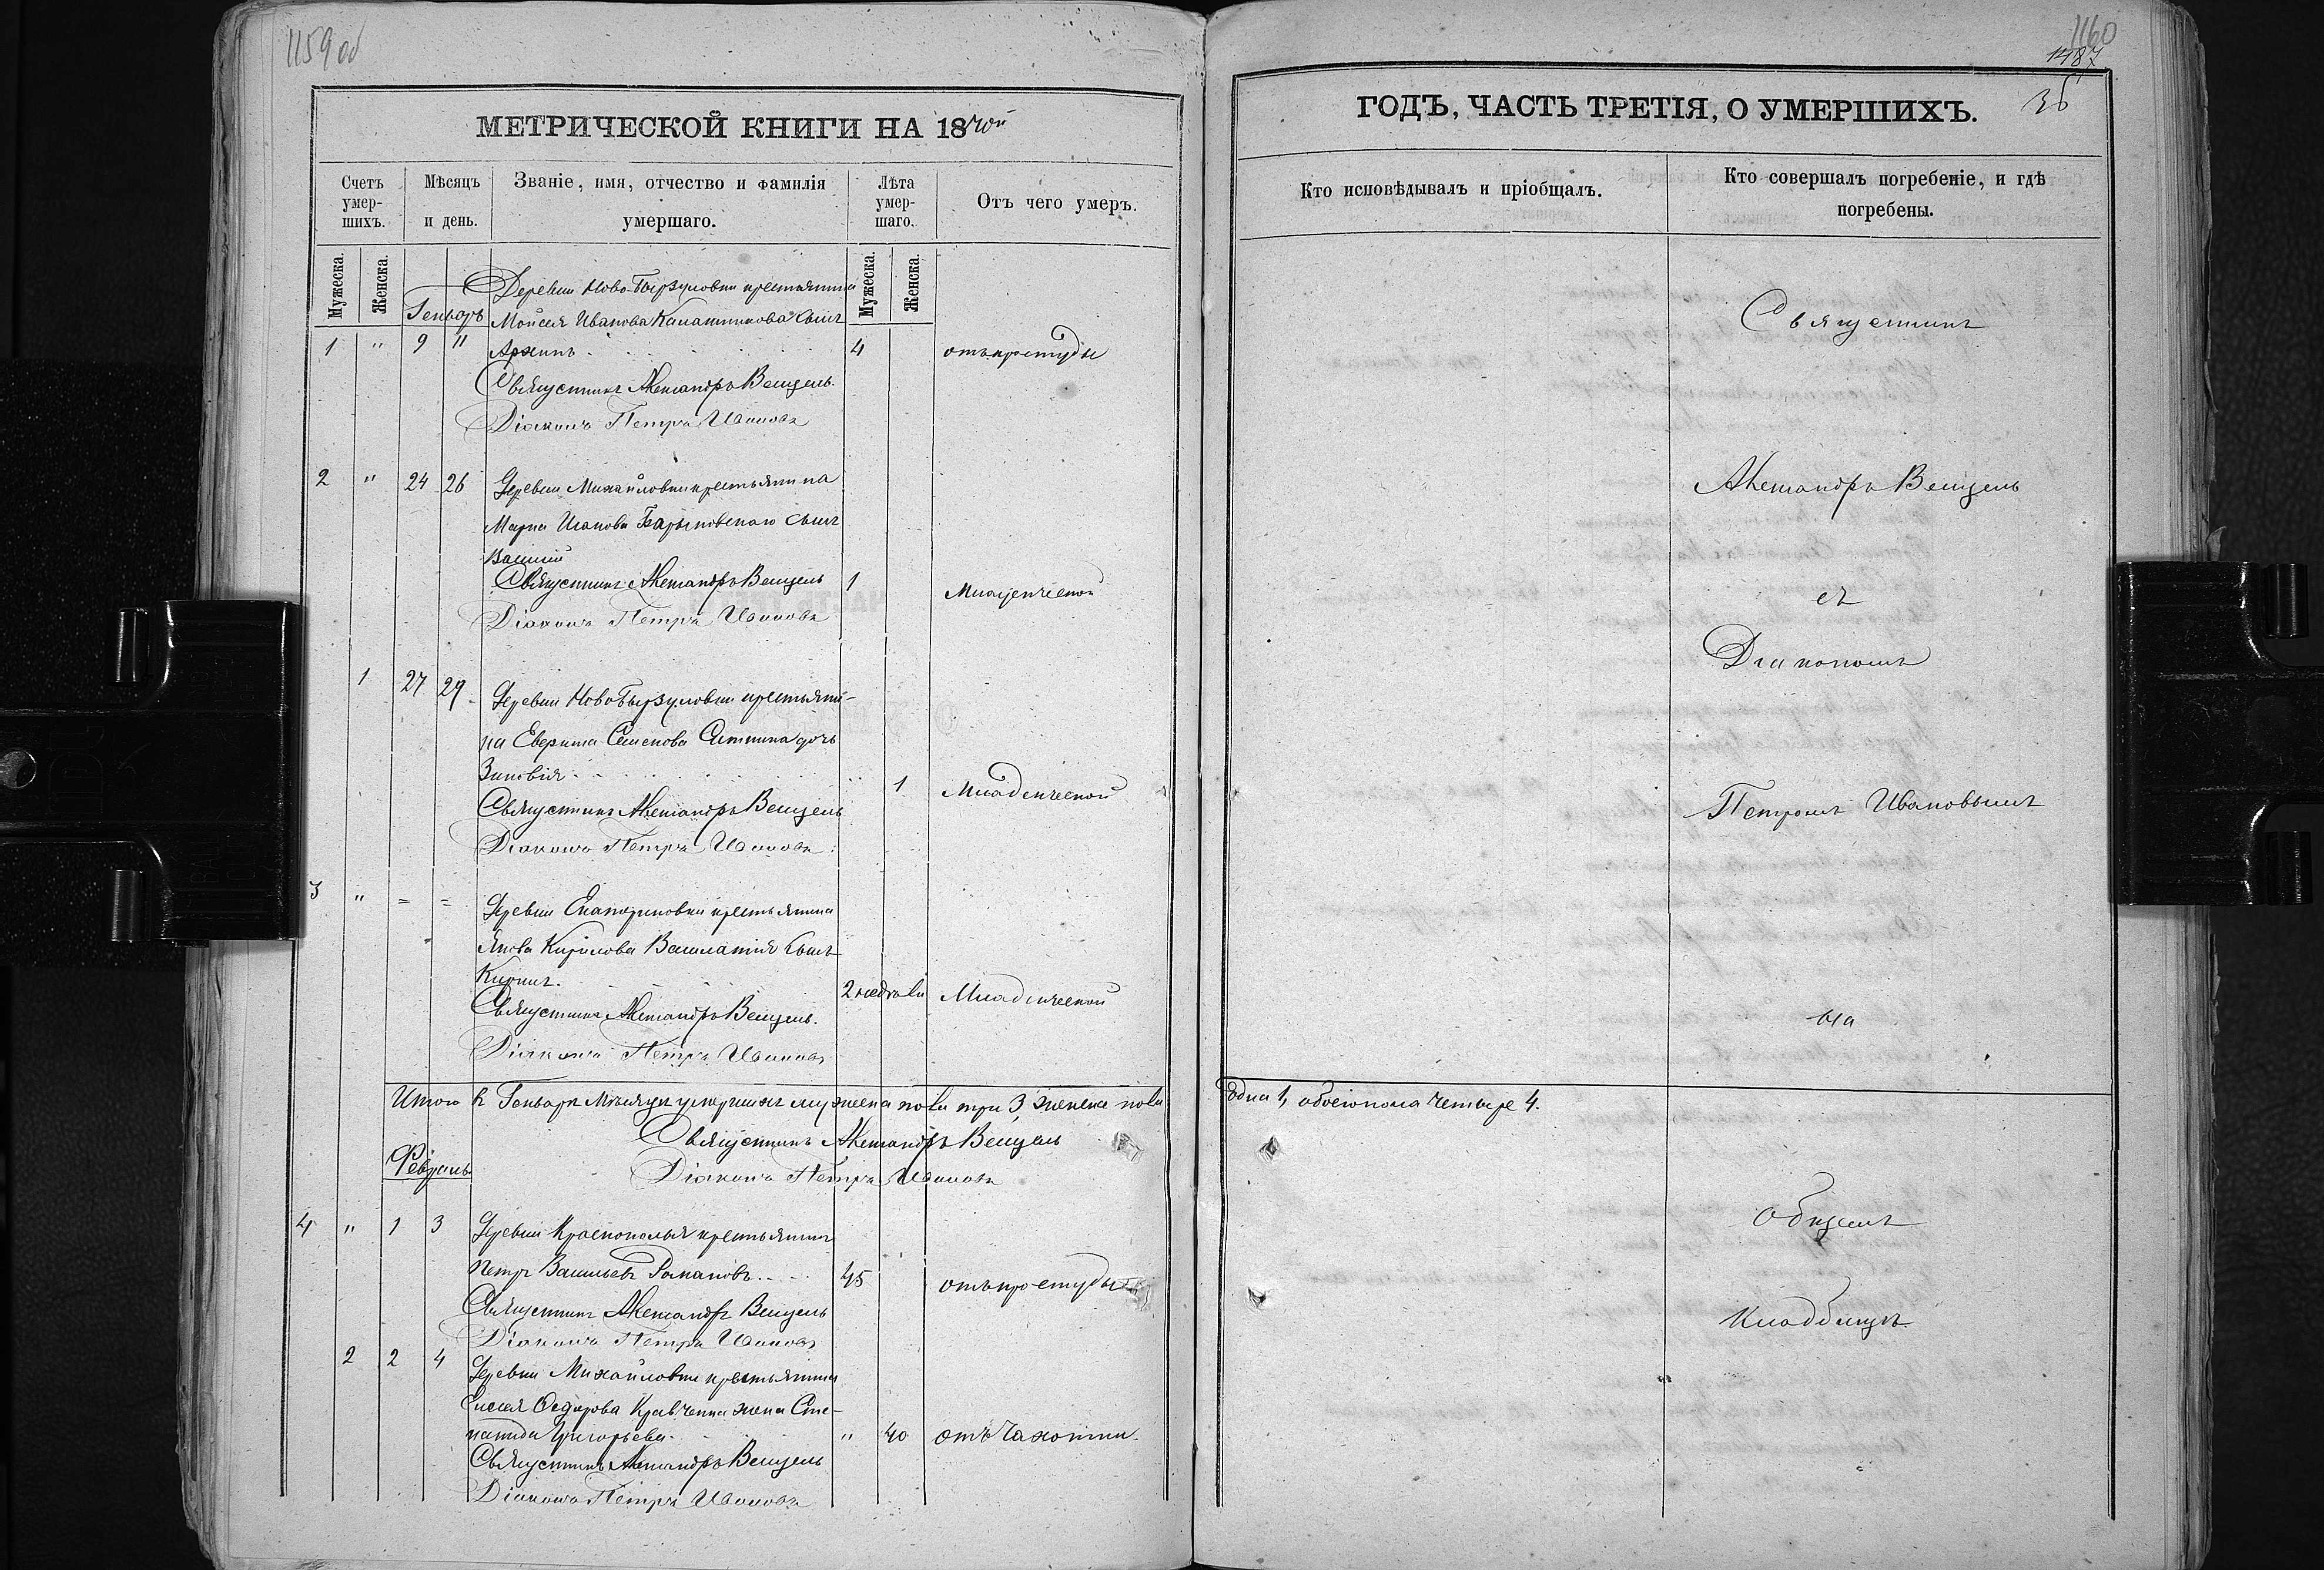 1159 об
МЕТРИЧЕСКОЙ КНИГИ НА 18
Счетъ умер-шихъ.
Мѣсяцъ и день.
Званіе, имя, отчество и фамилія умершаго.
Лѣта умер-шаго.
Отъ чего умеръ.
Мужеска.
Женска.
Мужеска.
Женска.
Генварь
Деревни Ново Бырзуловки крестьянина
Моисея Иванова сынъ
1 " 9 11 Архипъ 4 отъ простуды
Священникъ Александръ Венцель
Діаконъ Петръ Ивановъ
2 " 24 26 Деревни Михайловки крестьянина
Марка сынъ
Василій
Священникъ Александръ Венцель 1 Младенческой
Діаконъ Петръ Ивановъ
1 27 29 Деревни Ново Бырзуловки крестьяни-
на Семенова Ситника дочь
Зиновія 1 Младенческой
Священникъ Александръ Венцель
Діаконъ Петръ Ивановъ
3 " = = Деревни Екатериновки крестьянина
Якова Кирилова сынъ
Кирилъ 2 недѣли Младенческой
Священникъ Александръ Венцель
Діаконъ Петръ Ивановъ
Итого въ Генварѣ Мѣсяцѣ умершихъ мужеска пола три 3, женска пола
Священникъ Александръ Венцель
Февраль
Діаконъ Петръ Ивановъ
4 " 1 3 Деревни Краснополья крестьянинъ
Петръ Васильевъ Романовъ 45 отъ простуды
Священникъ Александръ Венцель
Діаконъ Петръ Ивановъ
2 2 4 Деревни Михайловки крестьянина
Елисея Федорова Кравченка жена Сте-
панида Григорьева " 40 отъ чахотки
Священникъ Александръ Венцель
Діаконъ Петръ Ивановъ
1160
1487
36
ГОДЪ, ЧАСТЬ ТРЕТІЯ, О УМЕРШИХЪ.
Кто исповѣдывалъ и пріобщалъ.
Кто совершалъ погребеніе, и гдѣ погребены.
Священникъ
Александръ Венцель
съ
Діакономъ
Петромъ Ивановымъ
на
одна 1, обоего пола четыре 4.
общемъ
кладбищѣ